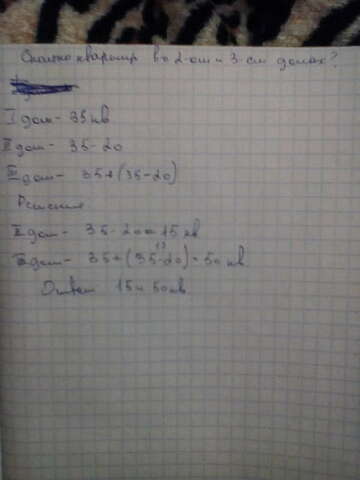 Сколько квартир во 2-ом и 3-ем домах?
I дом - 35 кв
II дом - 35-20
III дом - 35+(35-20)
Решение
II дом - 35-20=15 кв
15
III дом - 35+(35-20)=50 кв.
Ответ 15 и 50 кв.